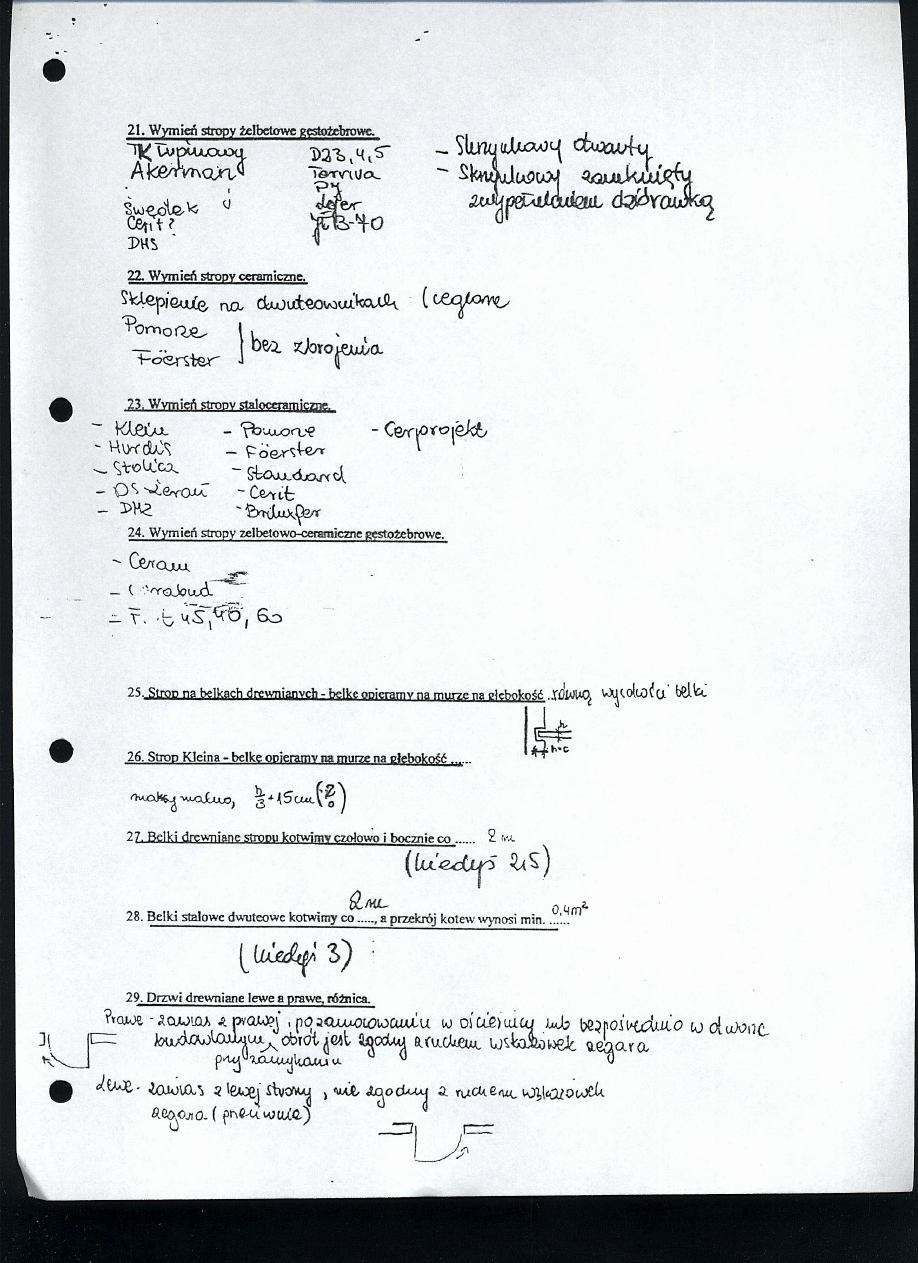 21. Wymień stropy żelbetowe gęstożebrowe.
TK Łupinowy D23,4,5 - Skrzynkowy otwarty
Akerman Teriva - Skrzynkowy zamknięty
z wypełnieniem dziurawką
Swędek
Cerit? JB-70
DMS
22. Wymień stropy ceramiczne.
Sklepienie na dwuteownikach (ceglane
Pomorze
Föerster bez zbrojenia
23. Wymień stropy staloceramiczne.
- Klein - Pomorze - Cerprojekt
- Hurdis - Föerster
- Stolica - Standard
- DS Żerań - Cerit
- DMZ
24. Wymień stropy zelbetowo-ceramiczne gęstożebrowe.
- Ceram
45, 40, 60
25. Strop na belkach drewnianych - belkę opieramy na murze na głębokość .. równą wysokości belki
h
h=c
26. Strop Kleina - belkę opieramy na murze na głębokość ......
maksymalno, h/3 + 15cm
27. Belki drewniane stropu kotwimy czołowo i bocznie co ...... 2 m
(kiedyś 2,5)
2m
28. Belki stalowe dwuteowe kotwimy co ....., a przekrój kotew wynosi min. ...... 0,4m²
(kiedyś 3)
29. Drzwi drewniane lewe a prawe, różnica.
Prawe - zawias z prawej, po zamocowaniu w ościeżnicy lub bezpośrednio w otworze
budowlanym, obrót jest zgodny z ruchem wskazówek zegara
przy zamykaniu
Lewe - zawias z lewej strony, nie zgodny z ruchem wskazówek
zegara (przeciwnie)